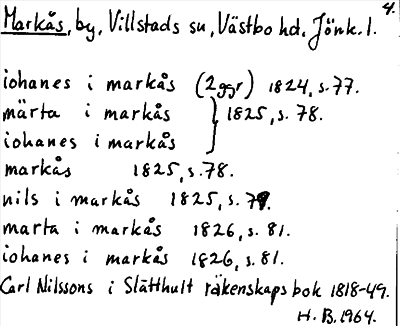 4.
Markås, by, Villstads sn, Västbo hd, Jönk. l.
iohanes i markås (2 ggr) 1824, s. 77.
märta i markås } 1825, s. 78.
iohanes i markås
markås 1825, s. 78.
nils i markås 1825, s. 79.
marta i markås 1826, s. 81.
iohanes i markås 1826, s. 81.
Carl Nilssons i Slätthult räkenskapsbok 1818-49.
H. B. 1964.